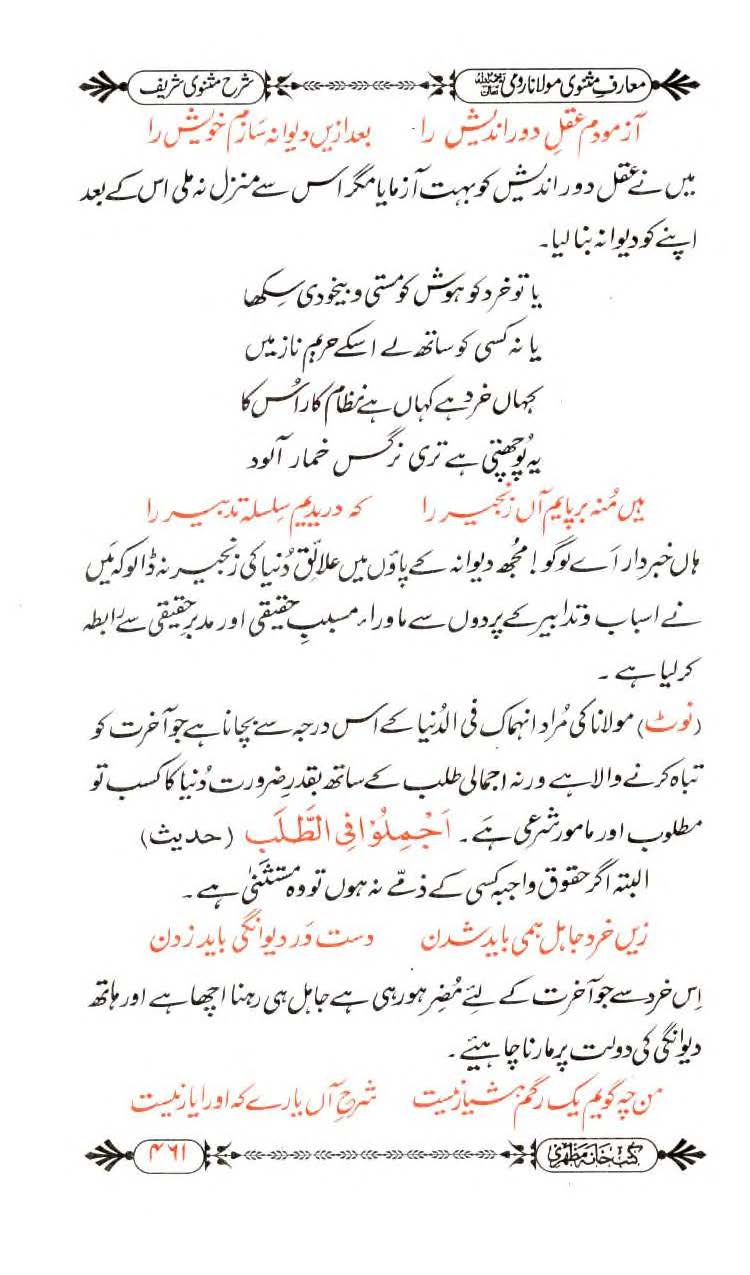 معارفِ مثنوی مولانا رومی رحمۃ اللہ تعالیٰ علیہ
شرح مثنوی شریف
آزمودم عقلِ دور اندیش را بعد ازیں دیوانہ سازم خویش را
میں نے عقل دور اندیش کو بہت آزمایا مگر اس سے منزل نہ ملی اس کے بعد
اپنے کو دیوانہ بنا لیا۔
یا تو خرد کو ہوش کو مستی و بیخودی سِکھا
یا نہ کسی کو ساتھ لے اسکے حریمِ ناز میں
کہاں خرد ہے کہاں ہے نظامِ کار اُس کا
یہ پُوچھتی ہے تری نرگس خمار آلود
ہیں مُنہ بر پایم آں زنجیر را کہ دریدیم سِلسلہ تدبیر را
ہاں خبردار اَے لوگو! مُجھ دیوانہ کے پاؤں میں علائقِ دُنیا کی زنجیر نہ ڈالو کہ مَیں
نے اسباب و تدابیر کے پردوں سے ماوراء مسببِ حقیقی اور مدبرِ حقیقی سے رابطہ
کر لیا ہے۔
(نوٹ) مولانا کی مُراد انہماک فی الدُنیا کے اس درجہ سے بچانا ہے جو آخرت کو
تباہ کرنے والا ہے ورنہ اجمالی طلب کے ساتھ بقدرِ ضرورت دُنیا کا کسب تو
مطلوب اور مامور شرعی ہَے۔ اَجْمِلُوْا فِی الطَّلَبِ (حدیث)
البتہ اگر حقوق واجبہ کسی کے ذمّے نہ ہوں تو وہ مستثنیٰ ہے۔
زیں خرد جاہل ہمی باید شدن دست دَر دیوانگی باید زدن
اِس خرد سے جو آخرت کے لئے مُضِر ہو رہی ہے جاہل ہی رہنا اچھا ہے اور ہاتھ
دیوانگی کی دولت پر مارنا چاہیئے۔
من چہ گویم یک رگم ہشیار نیست شرحِ آں یارے کہ اورا یار نیست
کتب خانہ مظہری
۴۶۱